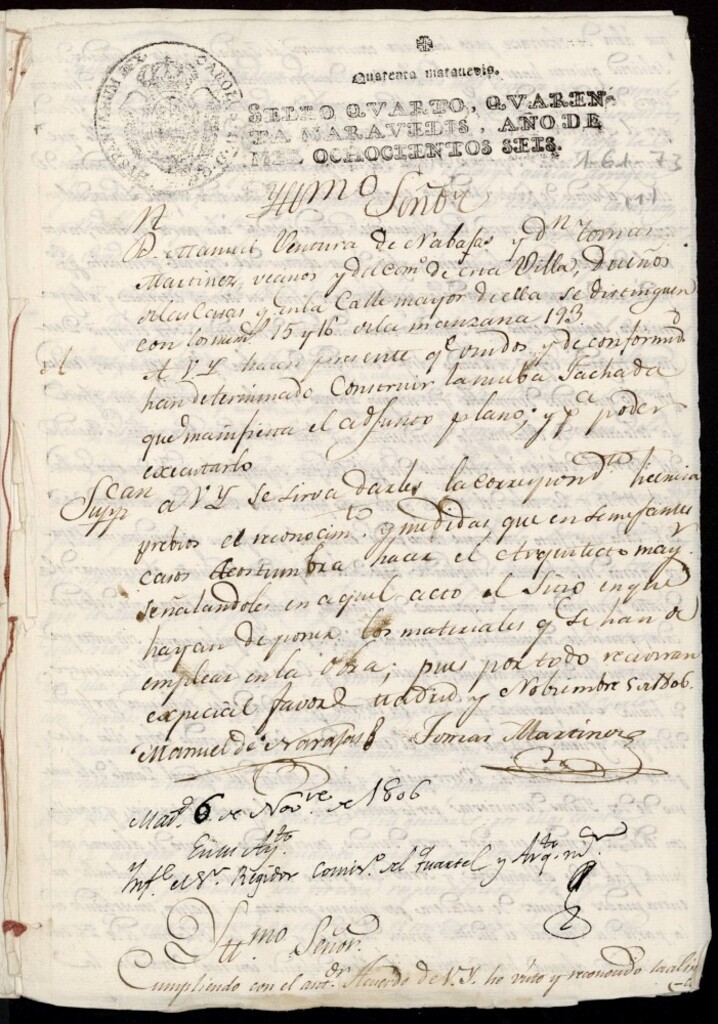 HISPANIARUM REX CAROLUS IV D G
Quarenta maravedis.
SELLO QVARTO, QVAREN-
TA MARAVEDIS, AÑO DE
MIL OCHOCIENTOS SEIS.
1-61-73
(1)
Yttmo Señor
Dn. Manuel Ventura de Nabajas y dn. Tomas
Martinez, vecinos y del com.o de esta Villa, dueños
de las Casas q.e en la Calle mayor de ella se distinguen
con los num.s 15 y 16 de la manzana 193
A V Y hacen presente q.e unidos y de conformid.d
han determinado Construir la nueba Fachada
que manifiesta el adjunto plano; y p.a poder
executarlo
Supp.can a V Y se sirva darles la correspond.te licencia
prebios el reconocim.to y medidas que en semejantes
casos acostumbra hacer el Arquitecto may.r
señalandoles en aquel acto el Sitio en que
hayan de poner los materiales q.e se han de
emplear en la obra; pues por todo reciviran
especial favor Madrid y Nobiembre 5 de 1806.
Manuel de Navajas Tomas Martinez
Mad.d 6 de Nov.re de 1806
En su Ay.to
Inf.e el S.r Regidor Comis.o del quartel y Arq.to m.r
Yttmo Señor.
Cumpliendo con el ant.or Acuerdo de V.Y. he visto y reconocido la alin-